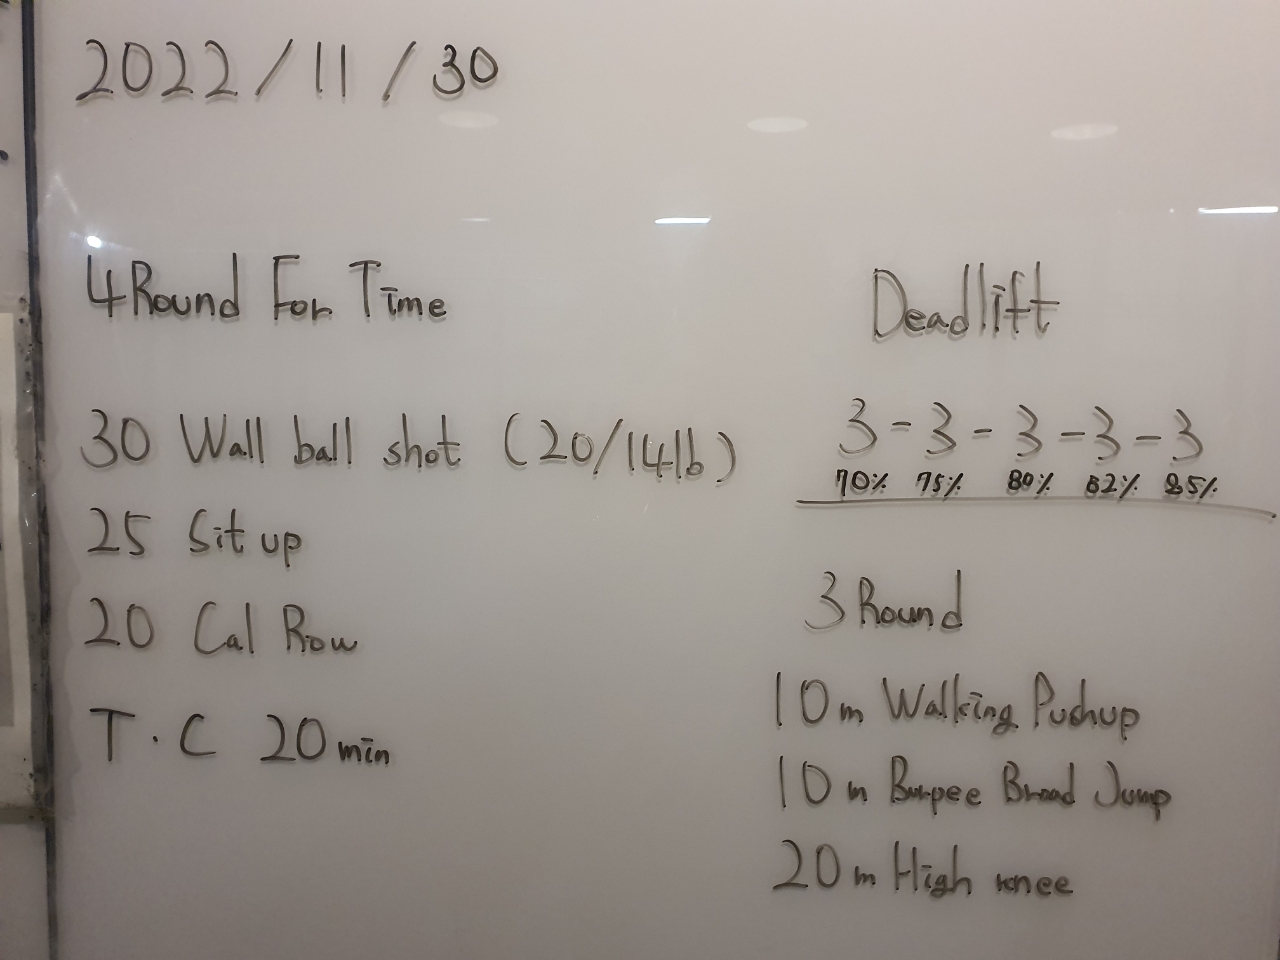 2022/11/30
4 Round For Time
30 Wall ball shot (20/14lb)
25 Sit up
20 Cal Row
T.C 20min
Deadlift
3-3-3-3-3
70% 75% 80% 82% 85%
3 Round
10m Walking Pushup
10m Burpee Broad Jump
20m High knee